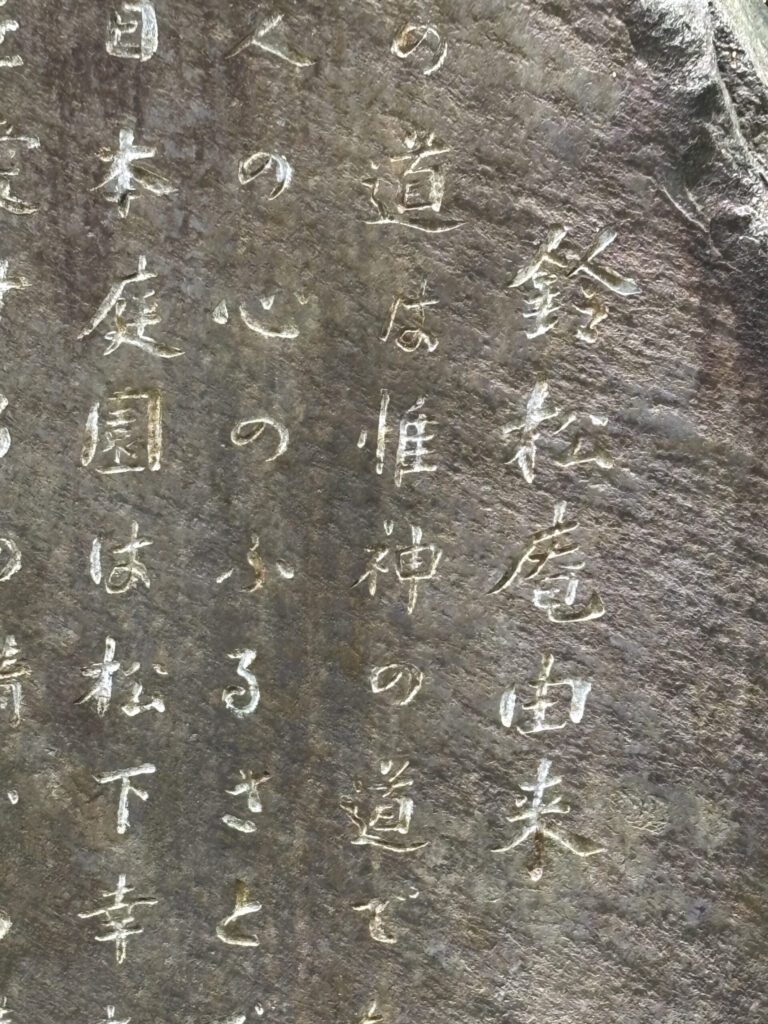 鈴松庵由来
の道は惟神の道で
人の心のふるさと
日本庭園は松下幸